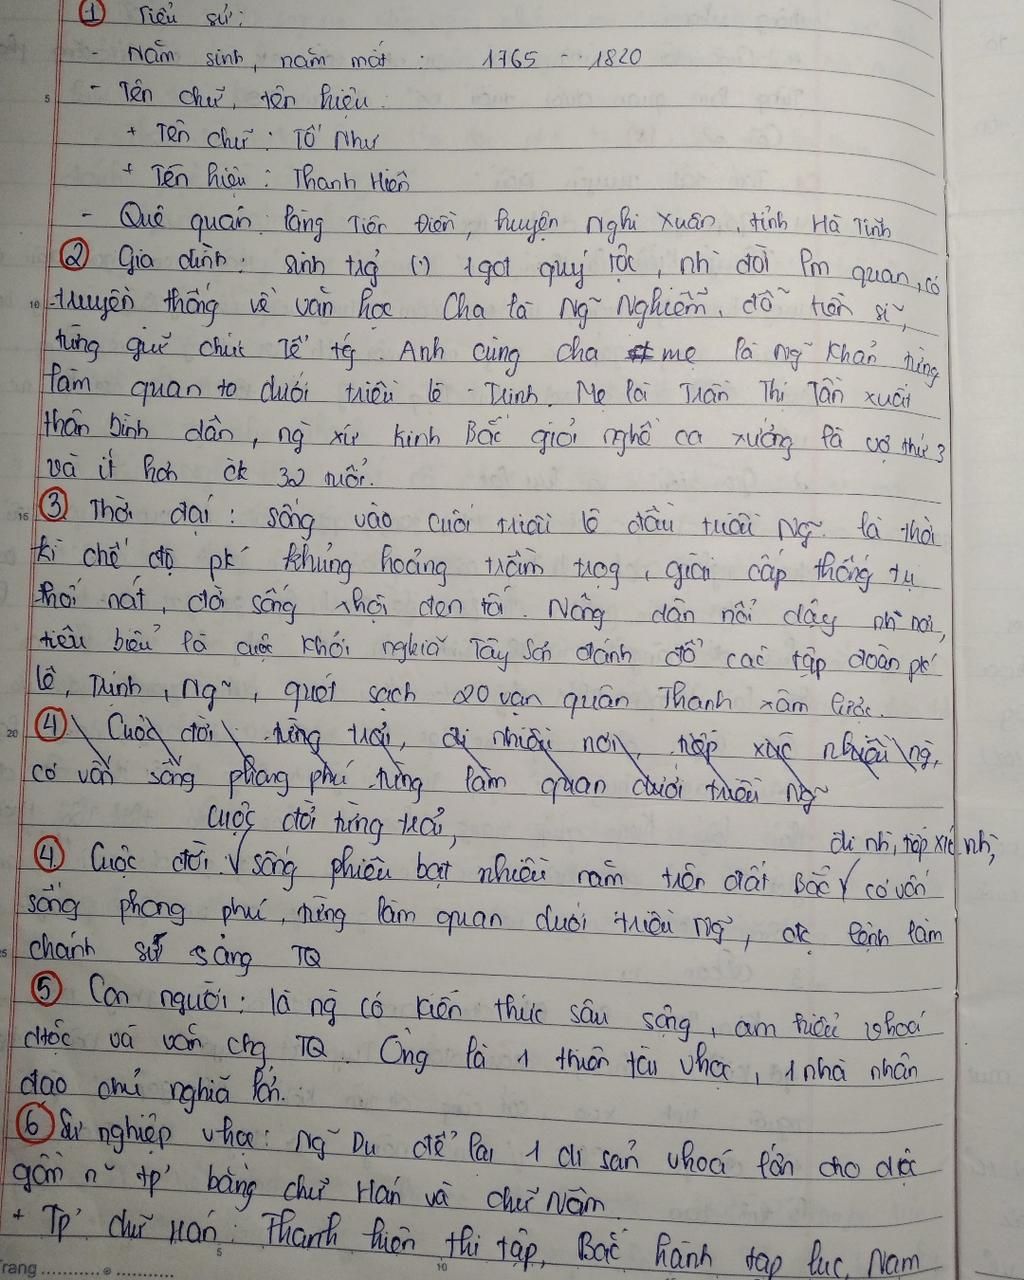 ① Tiểu sử:
- Năm sinh, năm mất : 1765 - 1820
- Tên chữ, tên hiệu:
+ Tên chữ: Tố Như
+ Tên hiệu: Thanh Hiên
- Quê quán: làng Tiên Điền, huyện Nghi Xuân, tỉnh Hà Tĩnh
② Gia đình: sinh trg (.) 1 gđ quý tộc, nh đời lm quan, có
truyền thống về văn học Cha là Ng~ Nghiễm, đỗ tiến sĩ,
từng giữ chức Tể tg. Anh cùng cha # mẹ là Ng~ Khản từng
làm quan to dưới triều lê - Trịnh. Mẹ là Trần Thị Tần xuất
thân bình dân, ng xứ Kinh Bắc giỏi nghề ca xướng là vợ thứ 3
và ít hơn ck 32 tuổi.
③ Thời đại: sống vào cuối triều lê đầu triều Ng~ là thời
kì chế độ pk khủng hoảng trầm trọg, giai cấp thống trị
thối nát, đời sống xhội đen tối. Nông dân nổi dậy nh nơi,
tiêu biểu là cuộc khởi nghĩa Tây Sơn đánh đổ các tập đoàn pk
lê, Trịnh, Ng~, quét sạch 20 vạn quân Thanh xâm lược.
④ Cuộc đời: từng trải, đi nhiều nơi, tiếp xúc nhiều ng,
có vốn sống phong phú từng làm quan dưới triều Ng~
cuộc đời từng trải,
đi nh, tiếp xúc nh,
④ Cuộc đời √ sống phiêu bạt nhiều năm trên đất Bắc √ có vốn
sống phong phú, từng làm quan dưới triều Ng~, đc lệnh làm
chánh sứ sang TQ
⑤ Con người: là ng có kiến thức sâu sộng, am hiểu vhoá
dtộc và văn chg TQ. Ông là 1 thiên tài vhọc, 1 nhà nhân
đạo chủ nghĩa lớn.
⑥ Sự nghiệp vhọc: Ng~ Du để lại 1 di sản vhoá lớn cho dtộc
gồm n~ tp' bằng chữ Hán và chữ Nôm.
+ Tp' chữ Hán: Thanh hiên thi tập, Bắc hành tạp lục, Nam
Trang
5
10
15
20
25
5
10